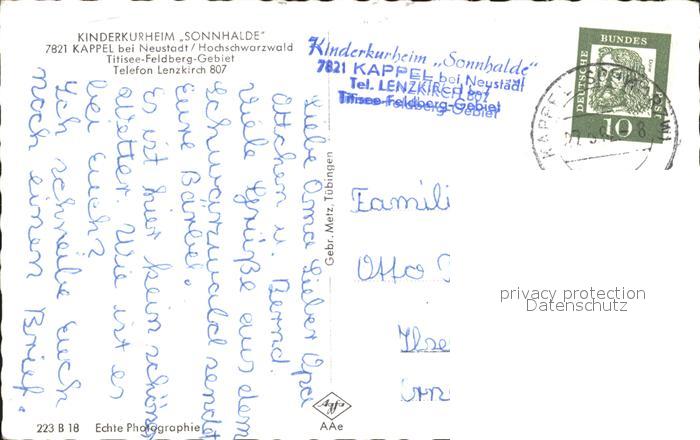 KINDERKURHEIM „SONNHALDE"
7821 KAPPEL bei Neustadt / Hochschwarzwald
Titisee-Feldberg-Gebiet
Telefon Lenzkirch 807
Kinderkurheim „Sonnhalde"
7821 KAPPEL bei Neustadt
Tel. LENZKIRCH 807
Titisee-Feldberg-Gebiet
DEUTSCHE
BUNDES
10
KAPPEL
Liebe Oma Lieber Opa
Ottchen u. Bernd.
Viele Grüße aus dem
Schwarzwald sendet
Eure Bärbel.
Es ist hier kein schönes
Wetter. Wie ist es
bei Euch?
Ich schreibe Euch
noch einen Brief.
Gebr. Metz, Tübingen
Famili
Otto
Ilse
privacy protection
Datenschutz
Agfa
AAe
223 B 18 Echte Photographie